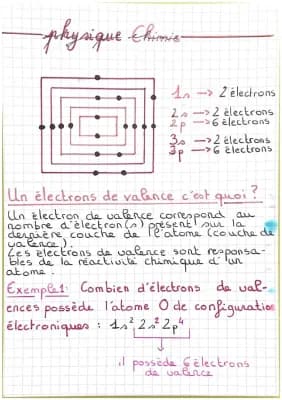 physique Chimie
1s → 2 électrons
2s → 2 électrons
2p → 6 électrons
3s → 2 électrons
3p → 6 électrons
Un électrons de valence c'est quoi ?
Un électron de valence correspond au
nombre d'électron(s) présent sur la
dernière couche de l'atome (couche de
valence).
Les électrons de valence sont responsa-
bles de la réactivité chimique d'un
atome.
Exemple1: Combien d'électrons de val-
ences possède l'atome O de configuration
électroniques : 1s² 2s² 2p⁴
il possède 6 électrons
de valence